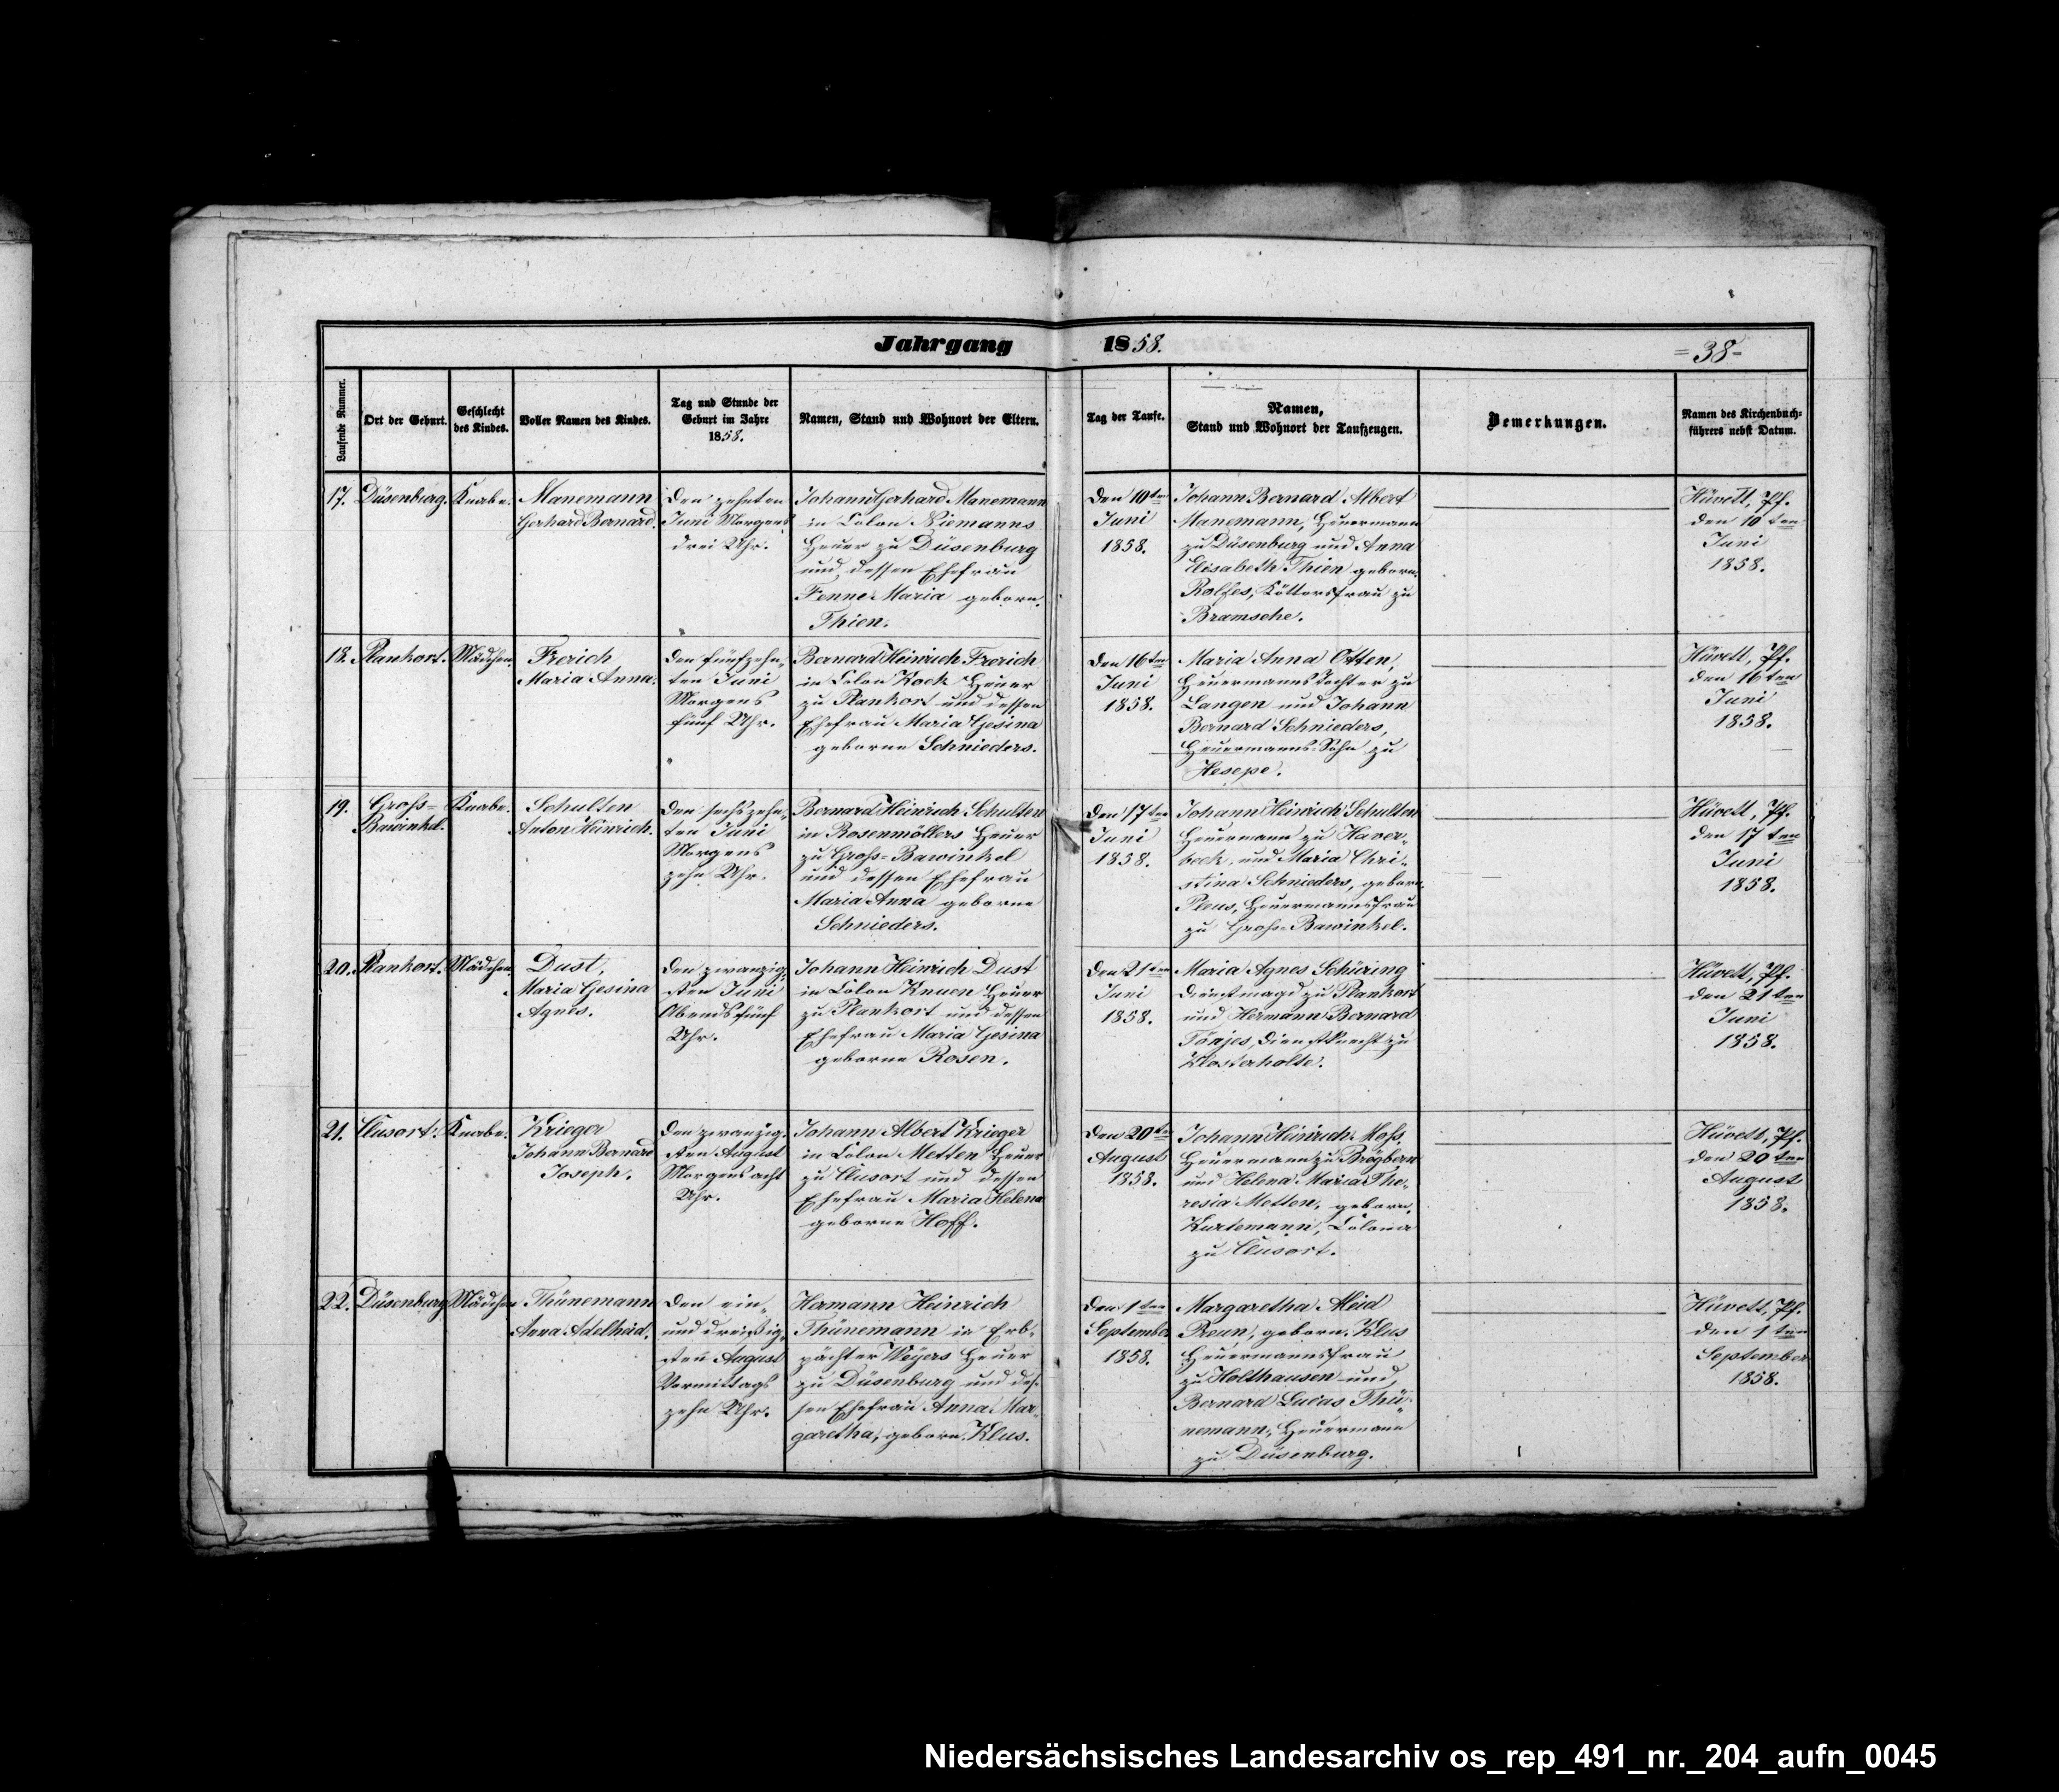 Jahrgang 1858.
=38=
Laufende Nummer.
Ort der Geburt.
Geschlecht
des Kindes.
Voller Namen des Kindes.
Tag und Stunde der
Geburt im Jahre
1858.
Namen, Stand und Wohnort der Eltern.
Tag der Taufe.
Namen,
Stand und Wohnort der Taufzeugen.
Bemerkungen.
Namen des Kirchenbuch-
führers nebst Datum.
17.
Düsenburg.
Knabe.
Manemann
Gerhard Bernard.
Den zehnten
Juni Morgens
drei Uhr.
Johann Gerhard Manemann
in Colon Niemanns
Heuer zu Düsenburg
und dessen Ehefrau
Fenne Maria geborn.
Thien.
Den 10ten
Juni
1858.
Johann Bernard Albert
Manemann, Heuermann
zu Düsenburg und Anna
Elisabeth Thien geborn.
Rolfes, Köttersfrau zu
Bramsche.
Hüvett, Pf.
den 10ten
Juni
1858.
18.
Plankort.
Mädchen.
Frerich
Maria Anna.
Den fünfzehn-
ten Juni
Morgens
fünf Uhr.
Bernard Heinrich Frerich
in Colon Kock Heuer
zu Plankort und dessen
Ehefrau Maria Gesina
geborne Schnieders.
Den 16ten
Juni
1858.
Maria Anna Otten,
Heuermanns Tochter zu
Langen und Johann
Bernard Schnieders,
Heuermanns-Sohn zu
Hesepe.
Hüvett, Pf.
den 16ten
Juni
1858.
19.
Gross-
Bawinkel.
Knabe.
Schulten
Anton Heinrich.
Den sechszehn-
ten Juni
Morgens
zehn Uhr.
Bernard Heinrich Schulten
in Rosenmöllers Heuer
zu Gross-Bawinkel
und dessen Ehefrau
Maria Anna geborne
Schnieders.
Den 17ten
Juni
1858.
Johann Heinrich Schulten
Heuermann zu Haver-
beck, und Maria Chri-
stina Schnieders, geborn.
Pleus, Heuermannsfrau
zu Gross-Bawinkel.
Hüvett, Pf.
den 17ten
Juni
1858.
20.
Plankort.
Mädchen.
Dust,
Maria Gesina
Agnes.
Den zwanzig-
sten Juni
Abends fünf
Uhr.
Johann Heinrich Dust
in Colon Knuen Heuer
zu Plankort und dessen
Ehefrau Maria Gesina
geborne Rosen.
Den 21ten
Juni
1858.
Maria Agnes Schüring
Dienstmagd zu Plankort
und Hermann Bernard
Tönjes, Dienstknecht zu
Klosterholte.
Hüvett, Pf.
den 21ten
Juni
1858.
21.
Clusort.
Knabe.
Krieger
Johann Bernard
Joseph.
Den zwanzig-
sten August
Morgens acht
Uhr.
Johann Albert Krieger
in Colon Metten Heuer
zu Clusort und dessen
Ehefrau Maria Helena
geborne Hoff.
Den 20ten
August
1858.
Johann Heinrich
Heuermann zu Brögbern
und Helena Maria The-
resia Metten, geborn.
Kurtemann, Colona
zu Clusort.
Hüvett, Pf.
den 20ten
August
1858.
22.
Düsenburg
Mädchen
Thünemann
Anna Adelheid.
Den ein-
und dreißig-
sten August
Vormittags
zehn Uhr.
Hermann Heinrich
Thünemann in Erb-
pächter Weÿers Heuer
zu Düsenburg und des-
sen Ehefrau Anna Mar-
garetha, geborn. Klus.
Den 1ten
September
1858.
Margaretha Aleid
geborn. Klus
Heuermannsfrau
zu Holthausen und
Bernard Lucas Thü-
nemann, Heuermann
zu Düsenburg.
Hüvett, Pf.
den 1ten
September
1858.
Niedersächsisches Landesarchiv os_rep_491_nr._204_aufn_0045